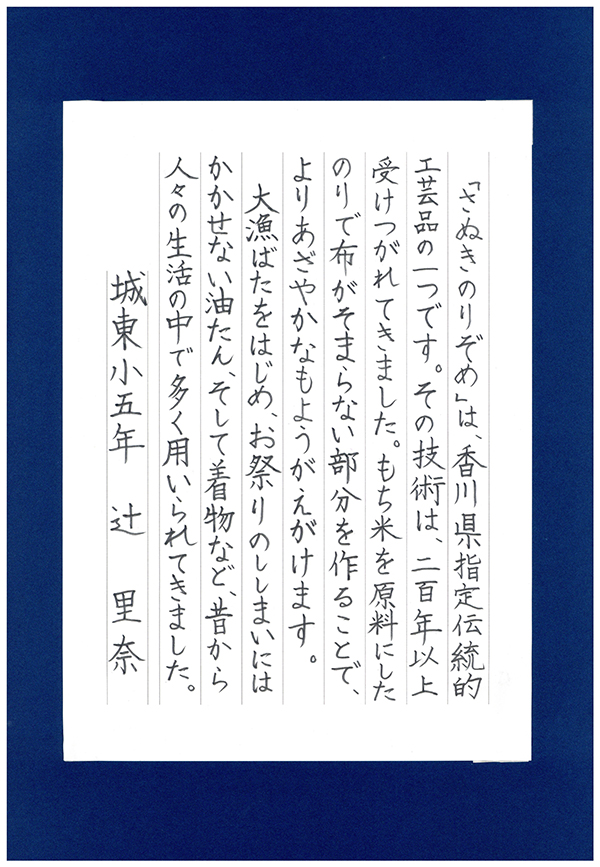 「さぬきのりぞめ」は、香川県指定伝統的
工芸品の一つです。その技術は、二百年以上
受けつがれてきました。もち米を原料にした
のりで布がそまらない部分を作ることで、
よりあざやかなもようがえがけます。
大漁ばたをはじめ、お祭りのししまいには
かかせない油たん、そして着物など、昔から
人々の生活の中で多く用いられてきました。
城東小五年 辻 里奈